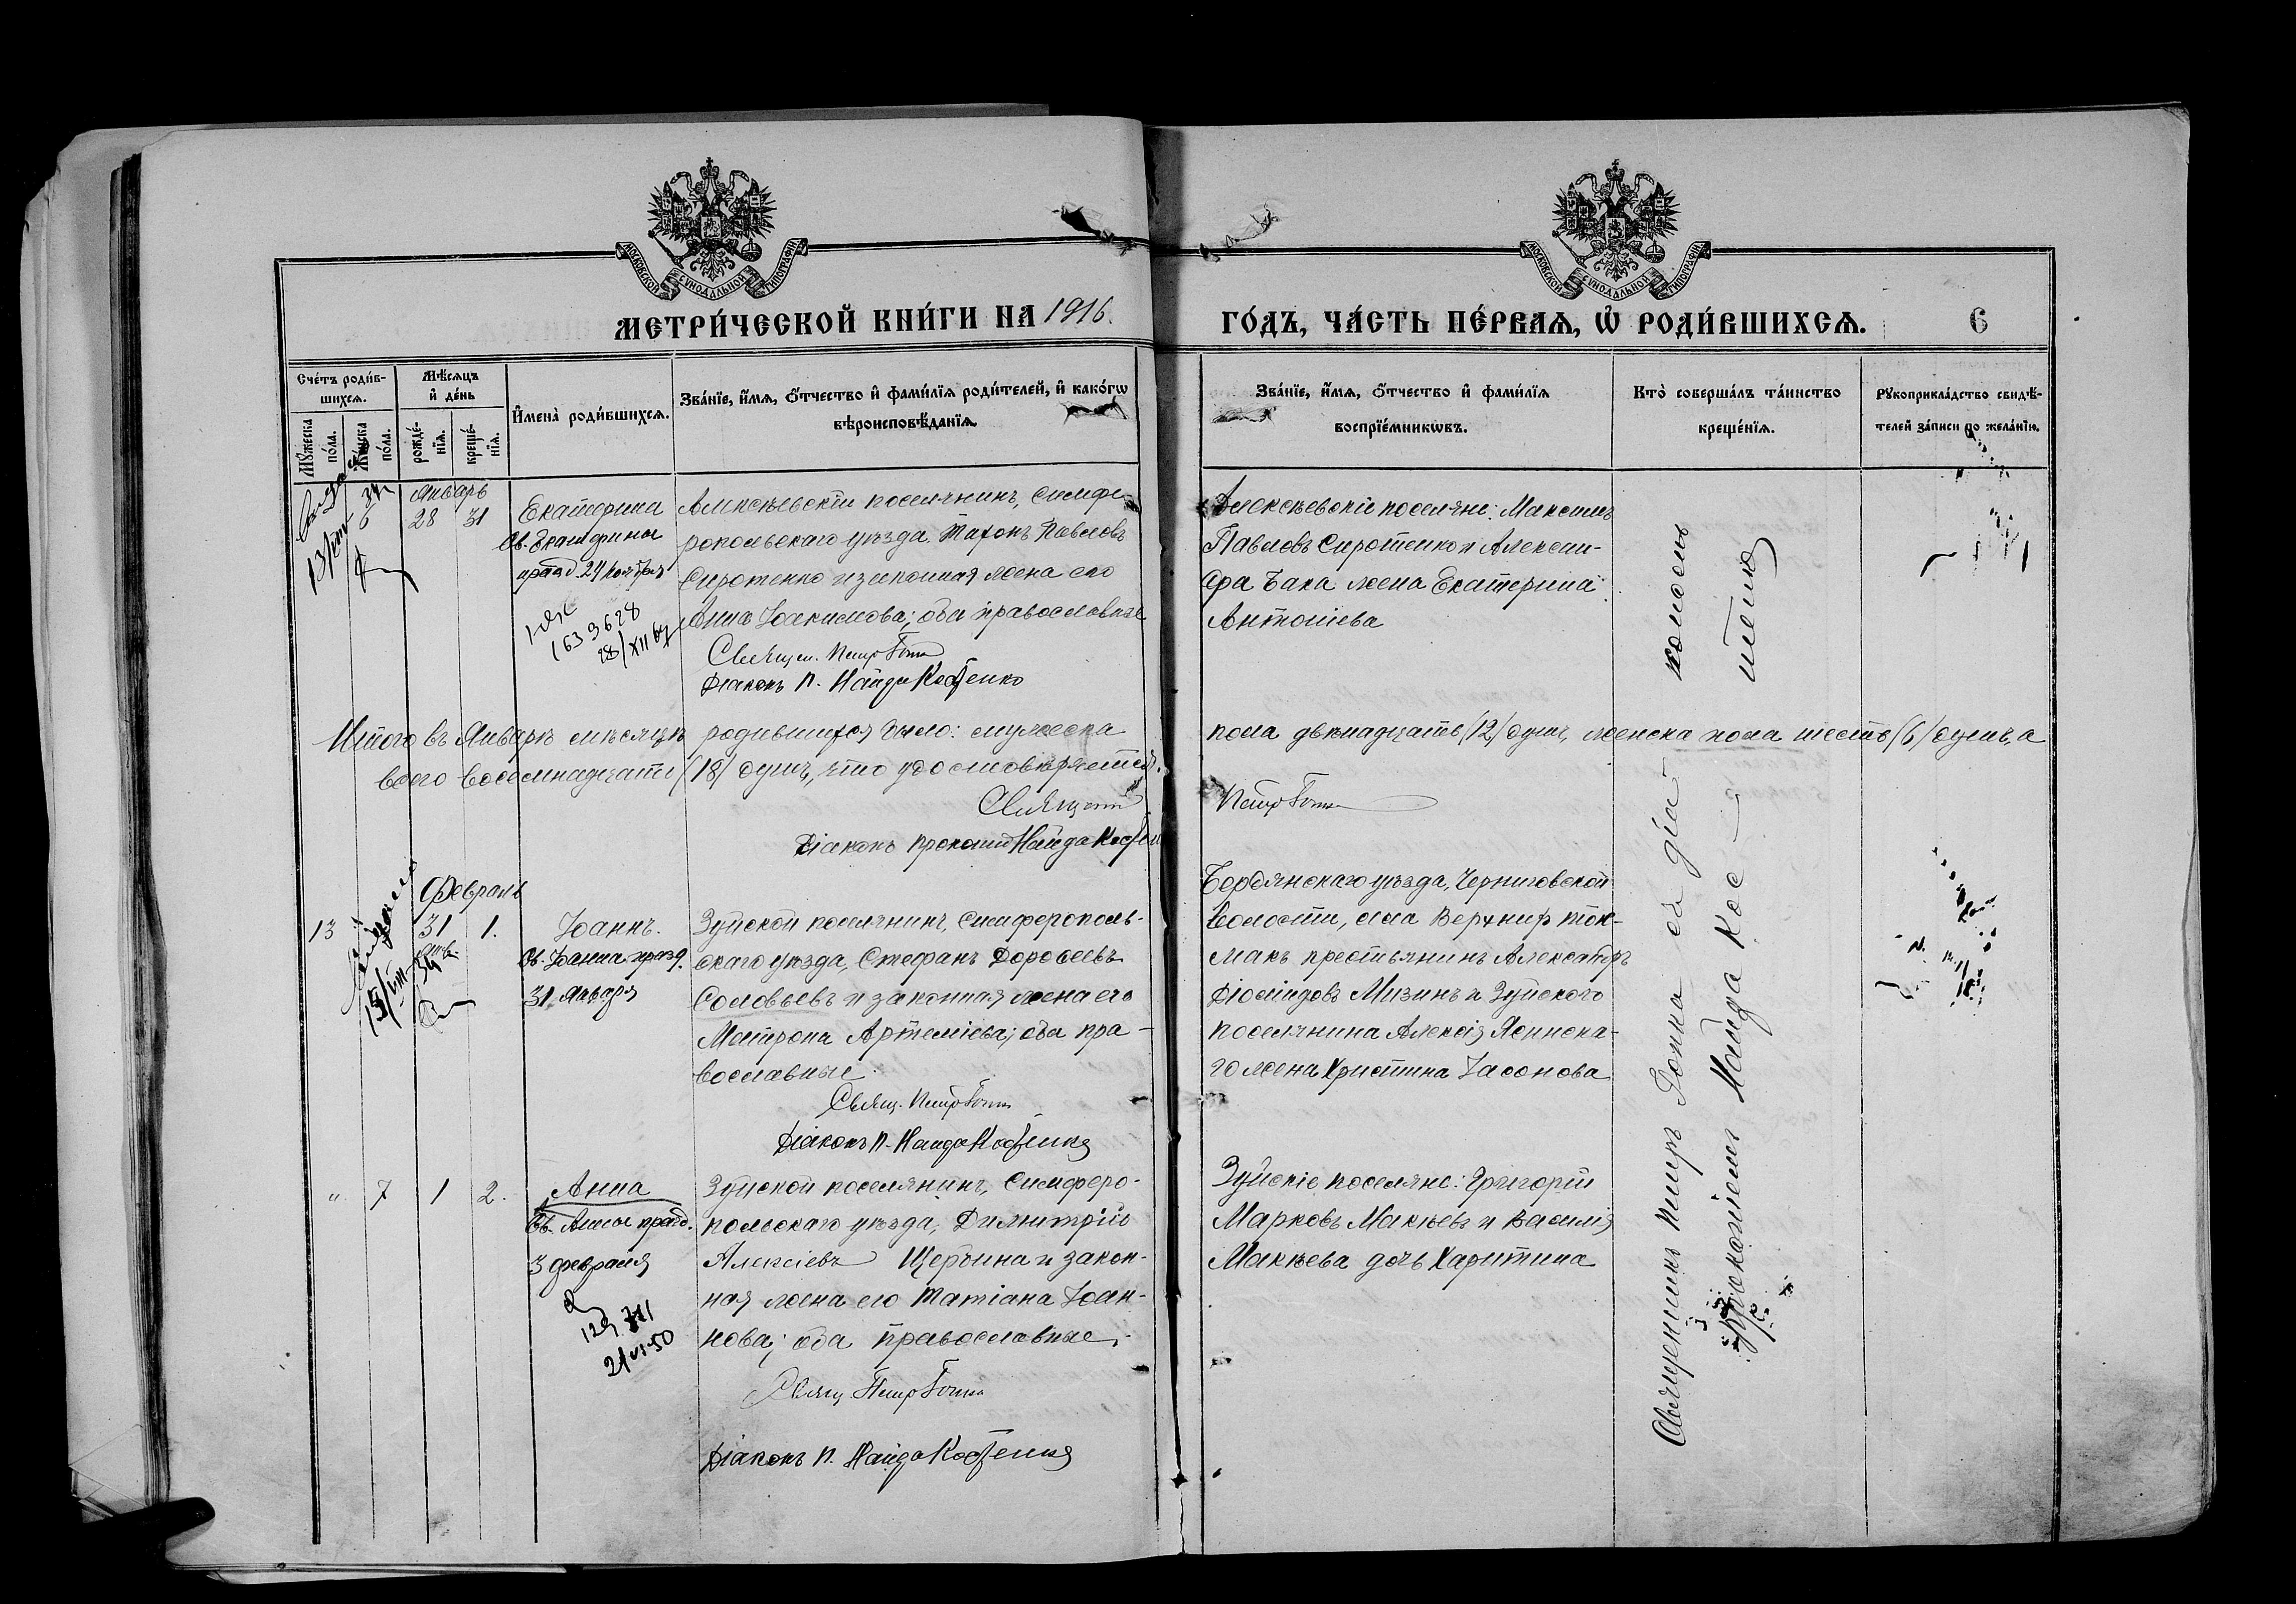 МОСКОВСКОЙ СѴНОДАЛЬНОЙ ТИПОГРАФІИ
МОСКОВСКОЙ СѴНОДАЛЬНОЙ ТИПОГРАФІИ
МЕТРИ́ЧЕСКОЙ КНИ́ГИ НА 1916.
ГО́ДЪ, ЧА́СТЬ ПЕ́РВАЯ, Ѡ҆ РОДИ́ВШИХСЯ. 6
Сче́тъ роди́в-
шихся.
Мѣ́сяцъ
и҆ де́нь
Мꙋ́жеска
по́ла.
Же́нска
по́ла.
рожде́-
нїя.
креще́-
нїя.
И҆мена̀ роди́вшихся.
Зва́нїе, и҆́мя, ѻ҆́тчество и҆ фами́лїя роди́телей, и҆ како́гѡ
вѣроисповѣ́данїя.
Зва́нїе, и҆́мя, ѻ҆́тчество и҆ фами́лїя
воспрїе́мникѡвъ.
Кто̀ соверша́лъ та́инство
креще́нїя.
Рꙋкоприкла́дство свидѣ́-
телей за́писи по жела́нїю.
Январь
6 28 31
Екатерина
Св. Екатерины
празд. 24 ноября
1639628
28/XII 67
Алексѣевскій поселянинъ, Симфе-
ропольскаго уѣзда, Тихонъ Павловъ
Сиротенко и законная жена его
Анна Іоакимова; оба православные
Священ. Петръ
Діаконъ П. Найда Костенко
Алексѣевскіе поселяне: Максимъ
Павловъ Сиротенко и Алексан-
дра Бака жена Екатерина
Антоніева
Итого въ Январѣ мѣсяцѣ родившихся было: мужеска пола двѣнадцать (12) душъ, женска пола шесть (6) душъ, а
всего восемнадцать (18) душъ, что удостовѣряется.
Священ. Петръ
Діаконъ Прокопій Найда Костен
Февраль
13 31 1.
Янв.
Іоаннъ.
Св. Іоанна празд.
31 Января
Зуйской поселянинъ, Симферополь-
скаго уѣзда, Стефанъ Дорофеевъ
Соловьевъ и законная жена его
Матрона Артеміева; оба пра-
вославные.
Свящ. Петръ
Діаконъ П. Найда Костенко
Бердянскаго уѣзда, Черниговской
волости, села Верхній Ток-
макъ крестьянинъ Александръ
Діомидовъ Мизинъ и Зуйского
поселянина Алексія Ясинска-
го жена Христина Іасонова
" 7 1 2.
Анна
Св. Анны празд.
3 февраля
21 VI 50
Зуйской поселянинъ, Симферо-
польскаго уѣзда, Димитрій
Алексіевъ Щербина и закон-
ная жена его Татіана Іоан-
нова; оба православные.
Свящ. Петръ
Діаконъ П. Найда Костенко
Зуйскіе поселяне: Григорій
Марковъ Макѣевъ и Василія
Макѣева дочь Харитина
Священникъ Петръ
Прокопіемъ Найда Кос-
тенко